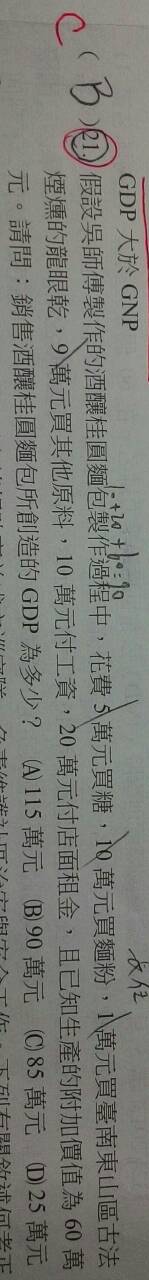 GDP 大於 GNP
C
( B )21. 假設吳師傅製作的酒釀桂圓麵包製作過程中，花費 5 萬元買糖，10 萬元買麵粉，1 萬元買臺南東山區古法
煙燻的龍眼乾，9 萬元買其他原料，10 萬元付工資，20 萬元付店面租金，且已知生產的附加價值為 60 萬
元。請問：銷售酒釀桂圓麵包所創造的 GDP 為多少？ (A)115 萬元 (B)90 萬元 (C)85 萬元 (D)25 萬元